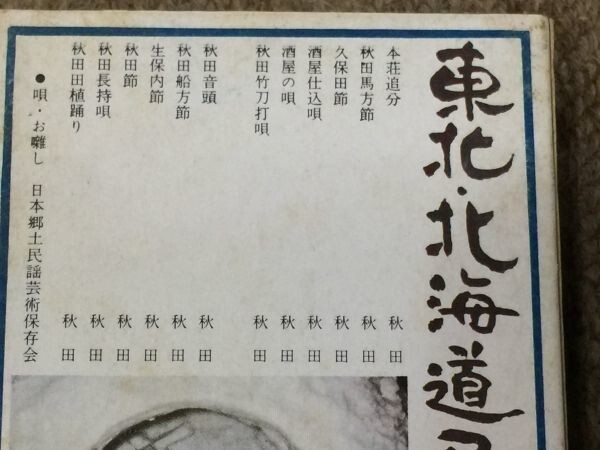 東北・北海道
本荘追分 秋田
秋田馬方節 秋田
久保田節 秋田
酒屋仕込唄 秋田
酒屋の唄 秋田
秋田竹刀打唄 秋田
秋田音頭 秋田
秋田船方節 秋田
生保内節 秋田
秋田節 秋田
秋田長持唄 秋田
秋田田植踊り 秋田
●唄・お囃し 日本郷土民謡芸術保存会